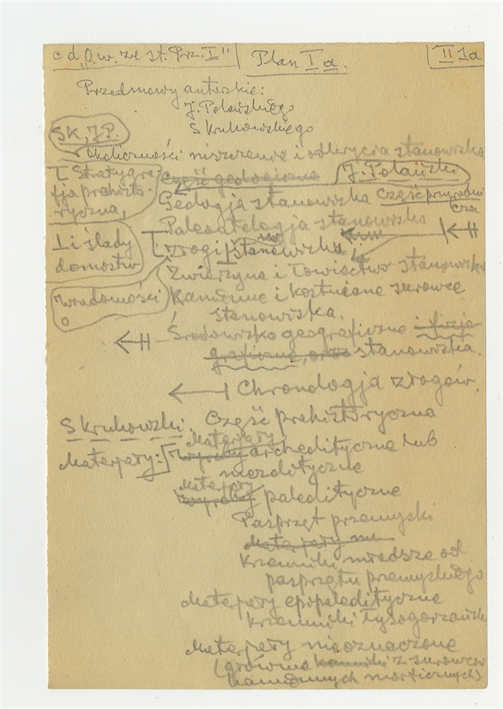 c d „O. w. ze st. Prz. I" Plan I a. II 1a
Przedmowy autorskie:
J. Polańskiego
S Krukowskiego
SK, JP.
Okoliczności niszczenia i odkrycia stanowiska
Stratygrafja prehistoryczna,
Część geologiczna J. Polański
Geologja stanowska Część przyrodnicza
Paleontologja stanowska
i ślady domostw
Złogi stanowiska
Zwierzyna i łowiectwo stanowiska
wiadomości o
Kamienne i kościane surowce
stanowiska.
Środowisko geograficzne i fizjograficzne, oraz stanowiska.
Chronologja złogów.
S Krukowski. Część prehistoryczna
Materjały
Materjały: Wyroby archeolityczne lub
mezolityczne
Materjały
Wyroby paleolityczne
Pasprzęt przemyski
Materjały
Krzemniki młodsze od
pasprzętu przemyskiego
Materjały epipaleolityczne
Krzemniki Łysogórzańskie
Materjały nieoznaczone
(głównie z surowców
kamiennych morficznych)